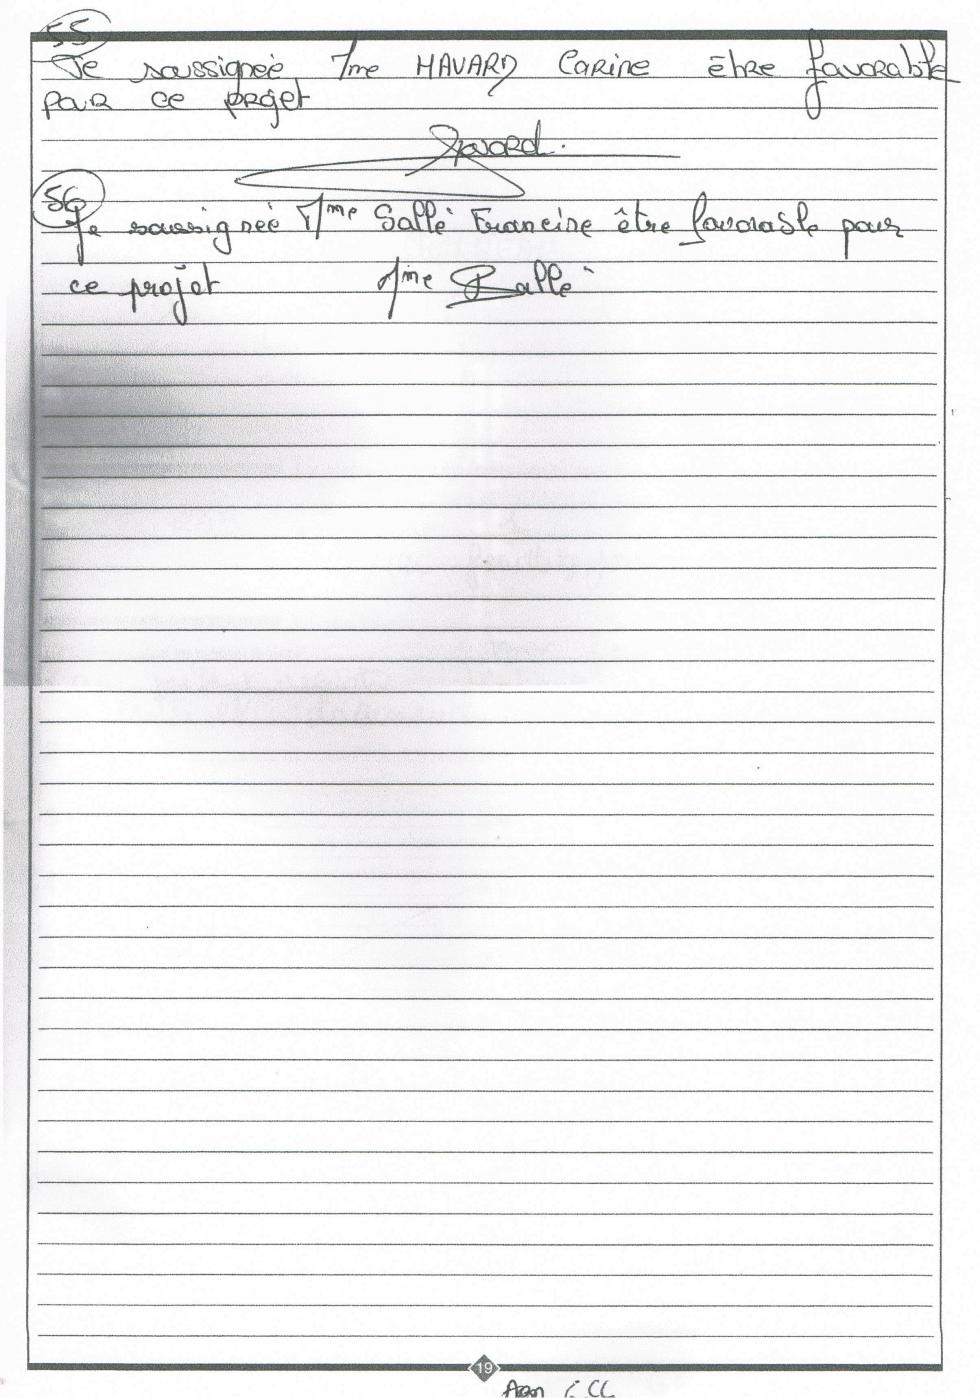 55
Je soussignée Mme HAVARD Carine être favorable
pour ce projet
Havard.
56
Je soussignée Mme Sallé Francine être favorable pour
ce projet Mme Sallé
19